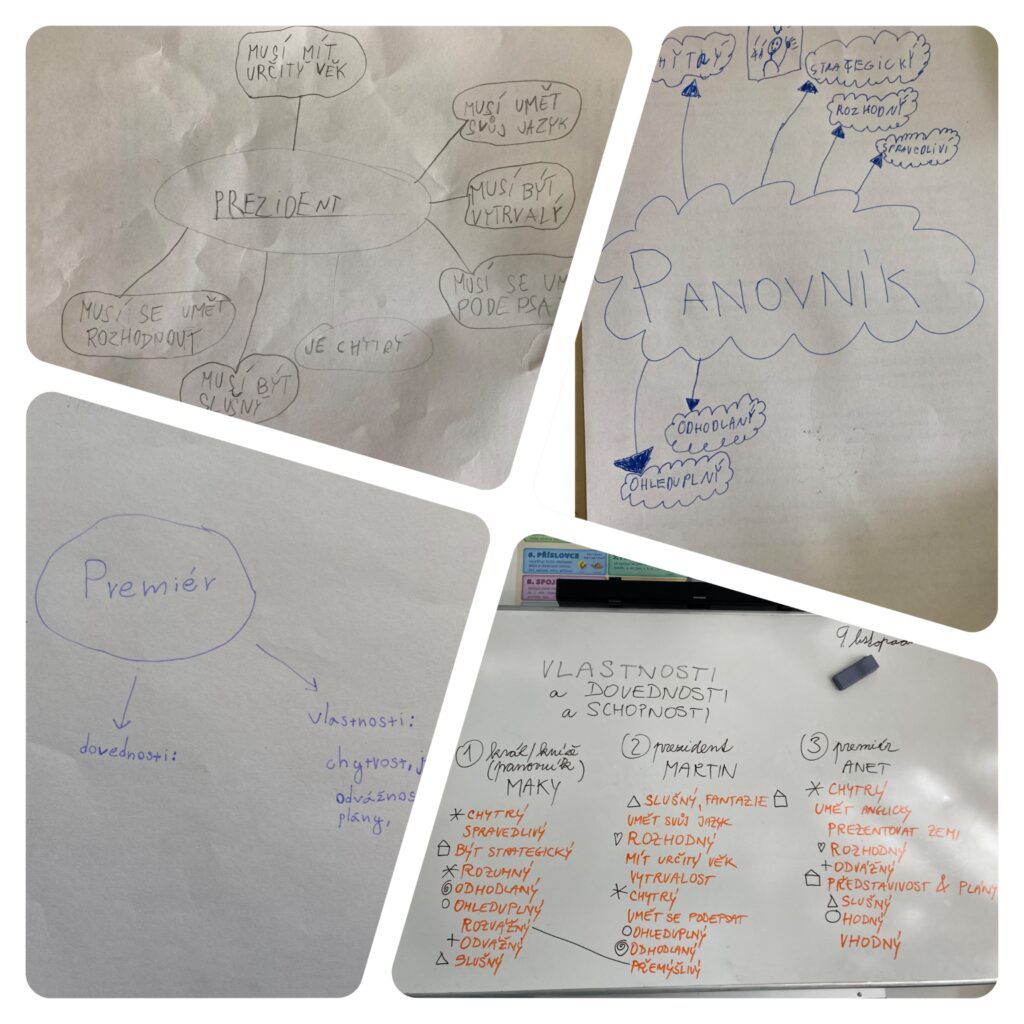 MUSÍ MÍT
URČITY VĚK
MUSÍ UMĚT
SVŮJ JAZYK
PREZIDENT
MUSÍ BÝT
VYTRVALÝ
MUSÍ SE UM
PODEPSA
MUSÍ SE UMĚT
ROZHODNOUT
JE CHYTRÝ
MUSÍ BÝT
SLUŠNÝ
HYTRÝ
STRATEGICKÝ
ROZHODNÝ
SPRAVEDLIVÍ
PANOVNÍK
ODHODLANÝ
OHLEDUPLNÝ
Premiér
dovednosti:
vlastnosti:
chytrost, j
odvážnos
plány,
6. PŘÍSLOVCE
8. SPOJ
9. listopad
VLASTNOSTI
a DOVEDNOSTI
a SCHOPNOSTI
1 král/kníže
(panovník)
MAKY
* CHYTRÝ
SPRAVEDLIVÝ
BÝT STRATEGICKÝ
* ROZUMNÝ
ODHODLANÝ
OHLEDUPLNÝ
ROZVÁŽNÝ
+ ODVÁŽNÝ
△ SLUŠNÝ
2 prezident
MARTIN
△ SLUŠNÝ, FANTAZIE
UMĚT SVŮJ JAZYK
♡ ROZHODNÝ
MÍT URČITÝ VĚK
VYTRVALOST
* CHYTRÝ
UMĚT SE PODEPSAT
○ OHLEDUPLNÝ
ODHODLANÝ
PŘEMÝŠLIVÝ
3 premiér
ANET
* CHYTRÝ
UMĚT ANGLICKY
PREZENTOVAT ZEMI
♡ ROZHODNÝ
+ ODVÁŽNÝ
PŘEDSTAVIVOST & PLÁNY
△ SLUŠNÝ
○ HODNÝ
VHODNÝ